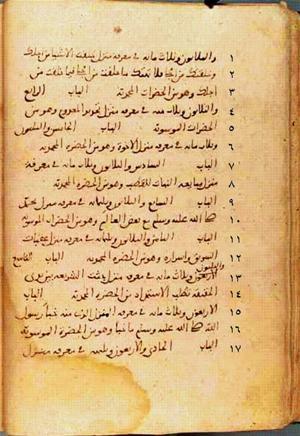 ١ والثلاثون وثلاث مائة في معرفة منزل خلقت الاشياء من اجلك
٢ وخلقتك من اجلي فلا تهتك ما خلقت من اجلي فيما خلقت من
٣ اجلك وهو من الحضرات المحمدية الباب الرابع
٤ والثلاثون وثلاث مائة في معرفة منزل تجديد المعدوم وهو من
٥ الحضرات الموسوية الباب الخامس والثلثون
٦ وثلاث مائة في معرفة منزل الاخوة وهو من الحضرة المحمدية
٧ الباب السادس والثلاثون وثلاث مائة في معرفة
٨ منزل مبايعة النبات للقطب وهو من الحضرة المحمدية
٩ الباب السابع والثلاثون وثلثمائة في معرفة منزل محمد
١٠ صلى الله عليه وسلم مع بعض العالم وهو من الحضرات الموسوية
١١ الباب الثامن والثلاثون وثلثمائة في معرفة منزل عقبات
١٢ السويق واسراره وهو من الحضرة المحمدية الباب التاسع
والثلاثون
١٣ وثلاث مائة في معرفة منزل جثت الشريعة بين يدي
١٤ الحقيقة تطلب الاستمداد من الحضرة المحمدية الباب
١٥ الاربعون وثلاث مائة في معرفة المنزل الذي منه خبأ رسول
١٦ الله صلى الله عليه وسلم ما خبأ وهو من الحضرة الموسوية
١٧ الباب الحادي والاربعون وثلثمائة في معرفة منزل